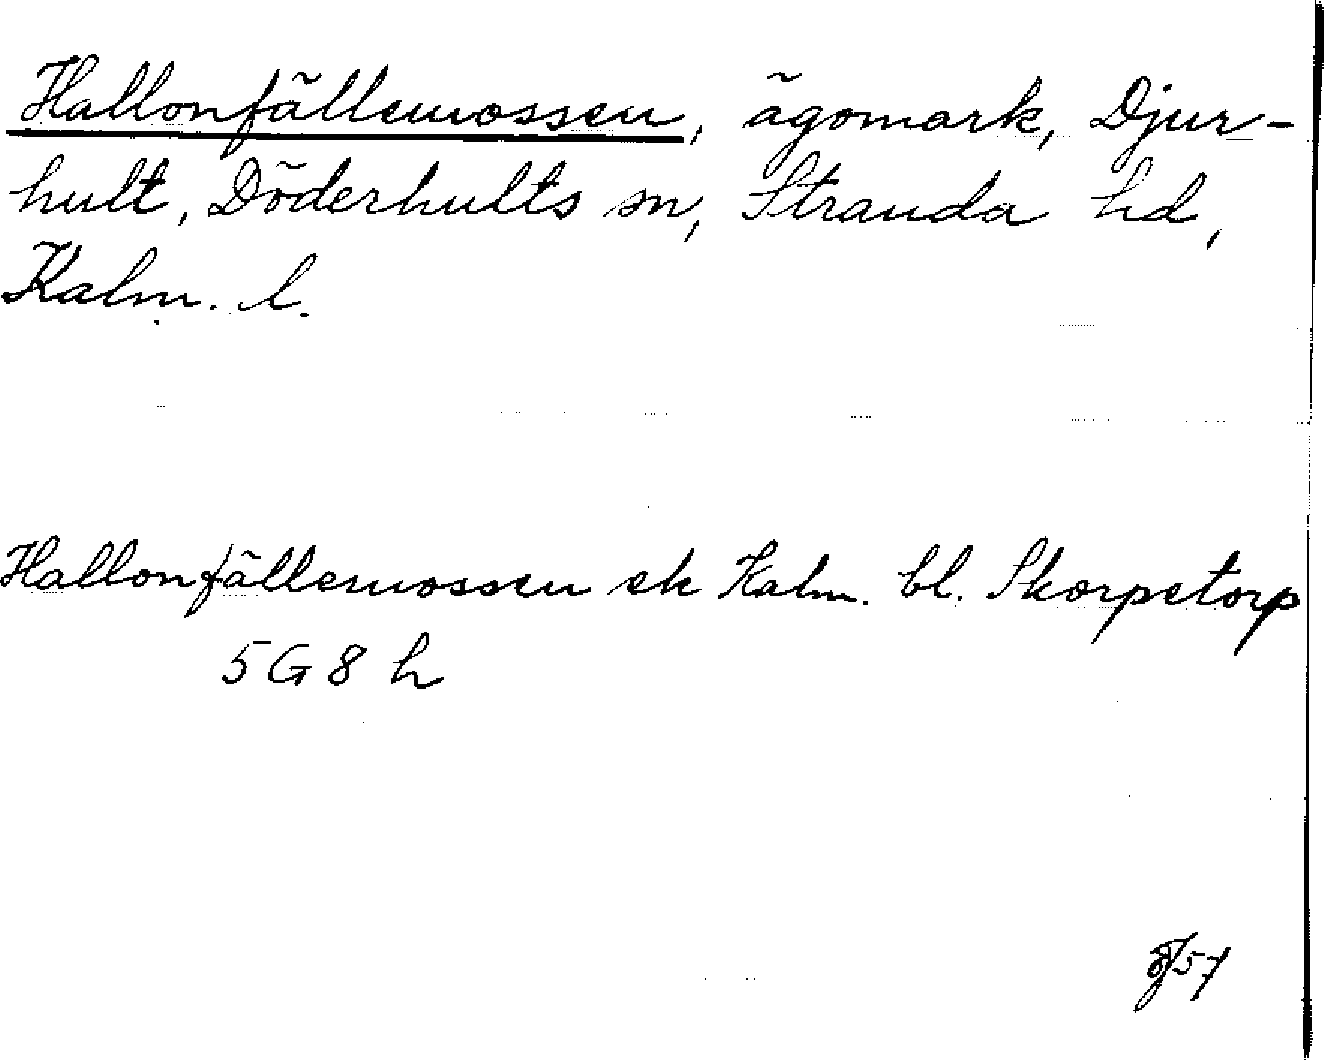 Hallonfällemossen, ägomark, Djur-
hult, Döderhults sn, Stranda hd,
Kalm. l.
Hallonfällemossen ek Kalm. bl. Skorpetorp
5G8h
57